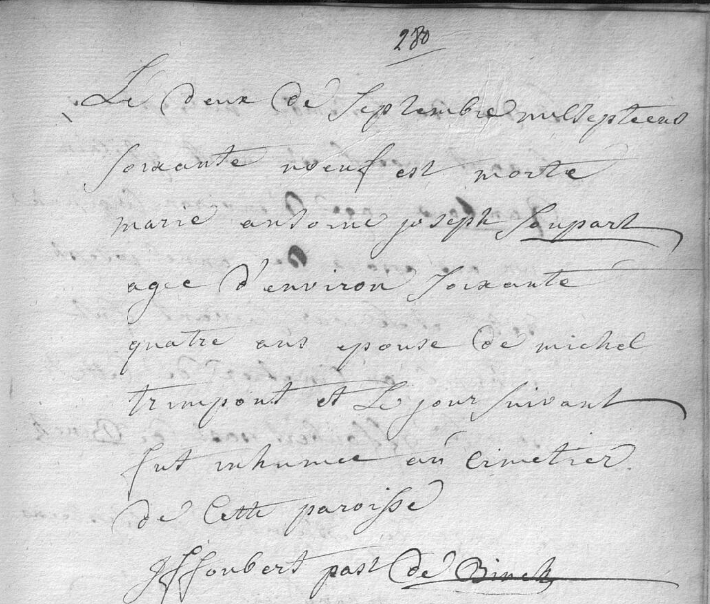 280
Le deux de Septembre mil septcens
soixante noeuf est morte
marie antoine joseph Soupart
agee d'environ soixante
quatre ans epouse de michel
trimpont et Le jour suivant
fut inhumee au cimetier
de Cette paroisse
foubert past de Binch